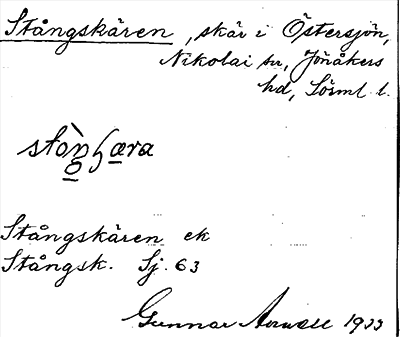 Stångskären, skär i Östersjön,
Nikolai sn, Jönåkers
hd, Sörml. l.
Stångskären ek
Stångsk. Sj. 63
Gunnar 1933